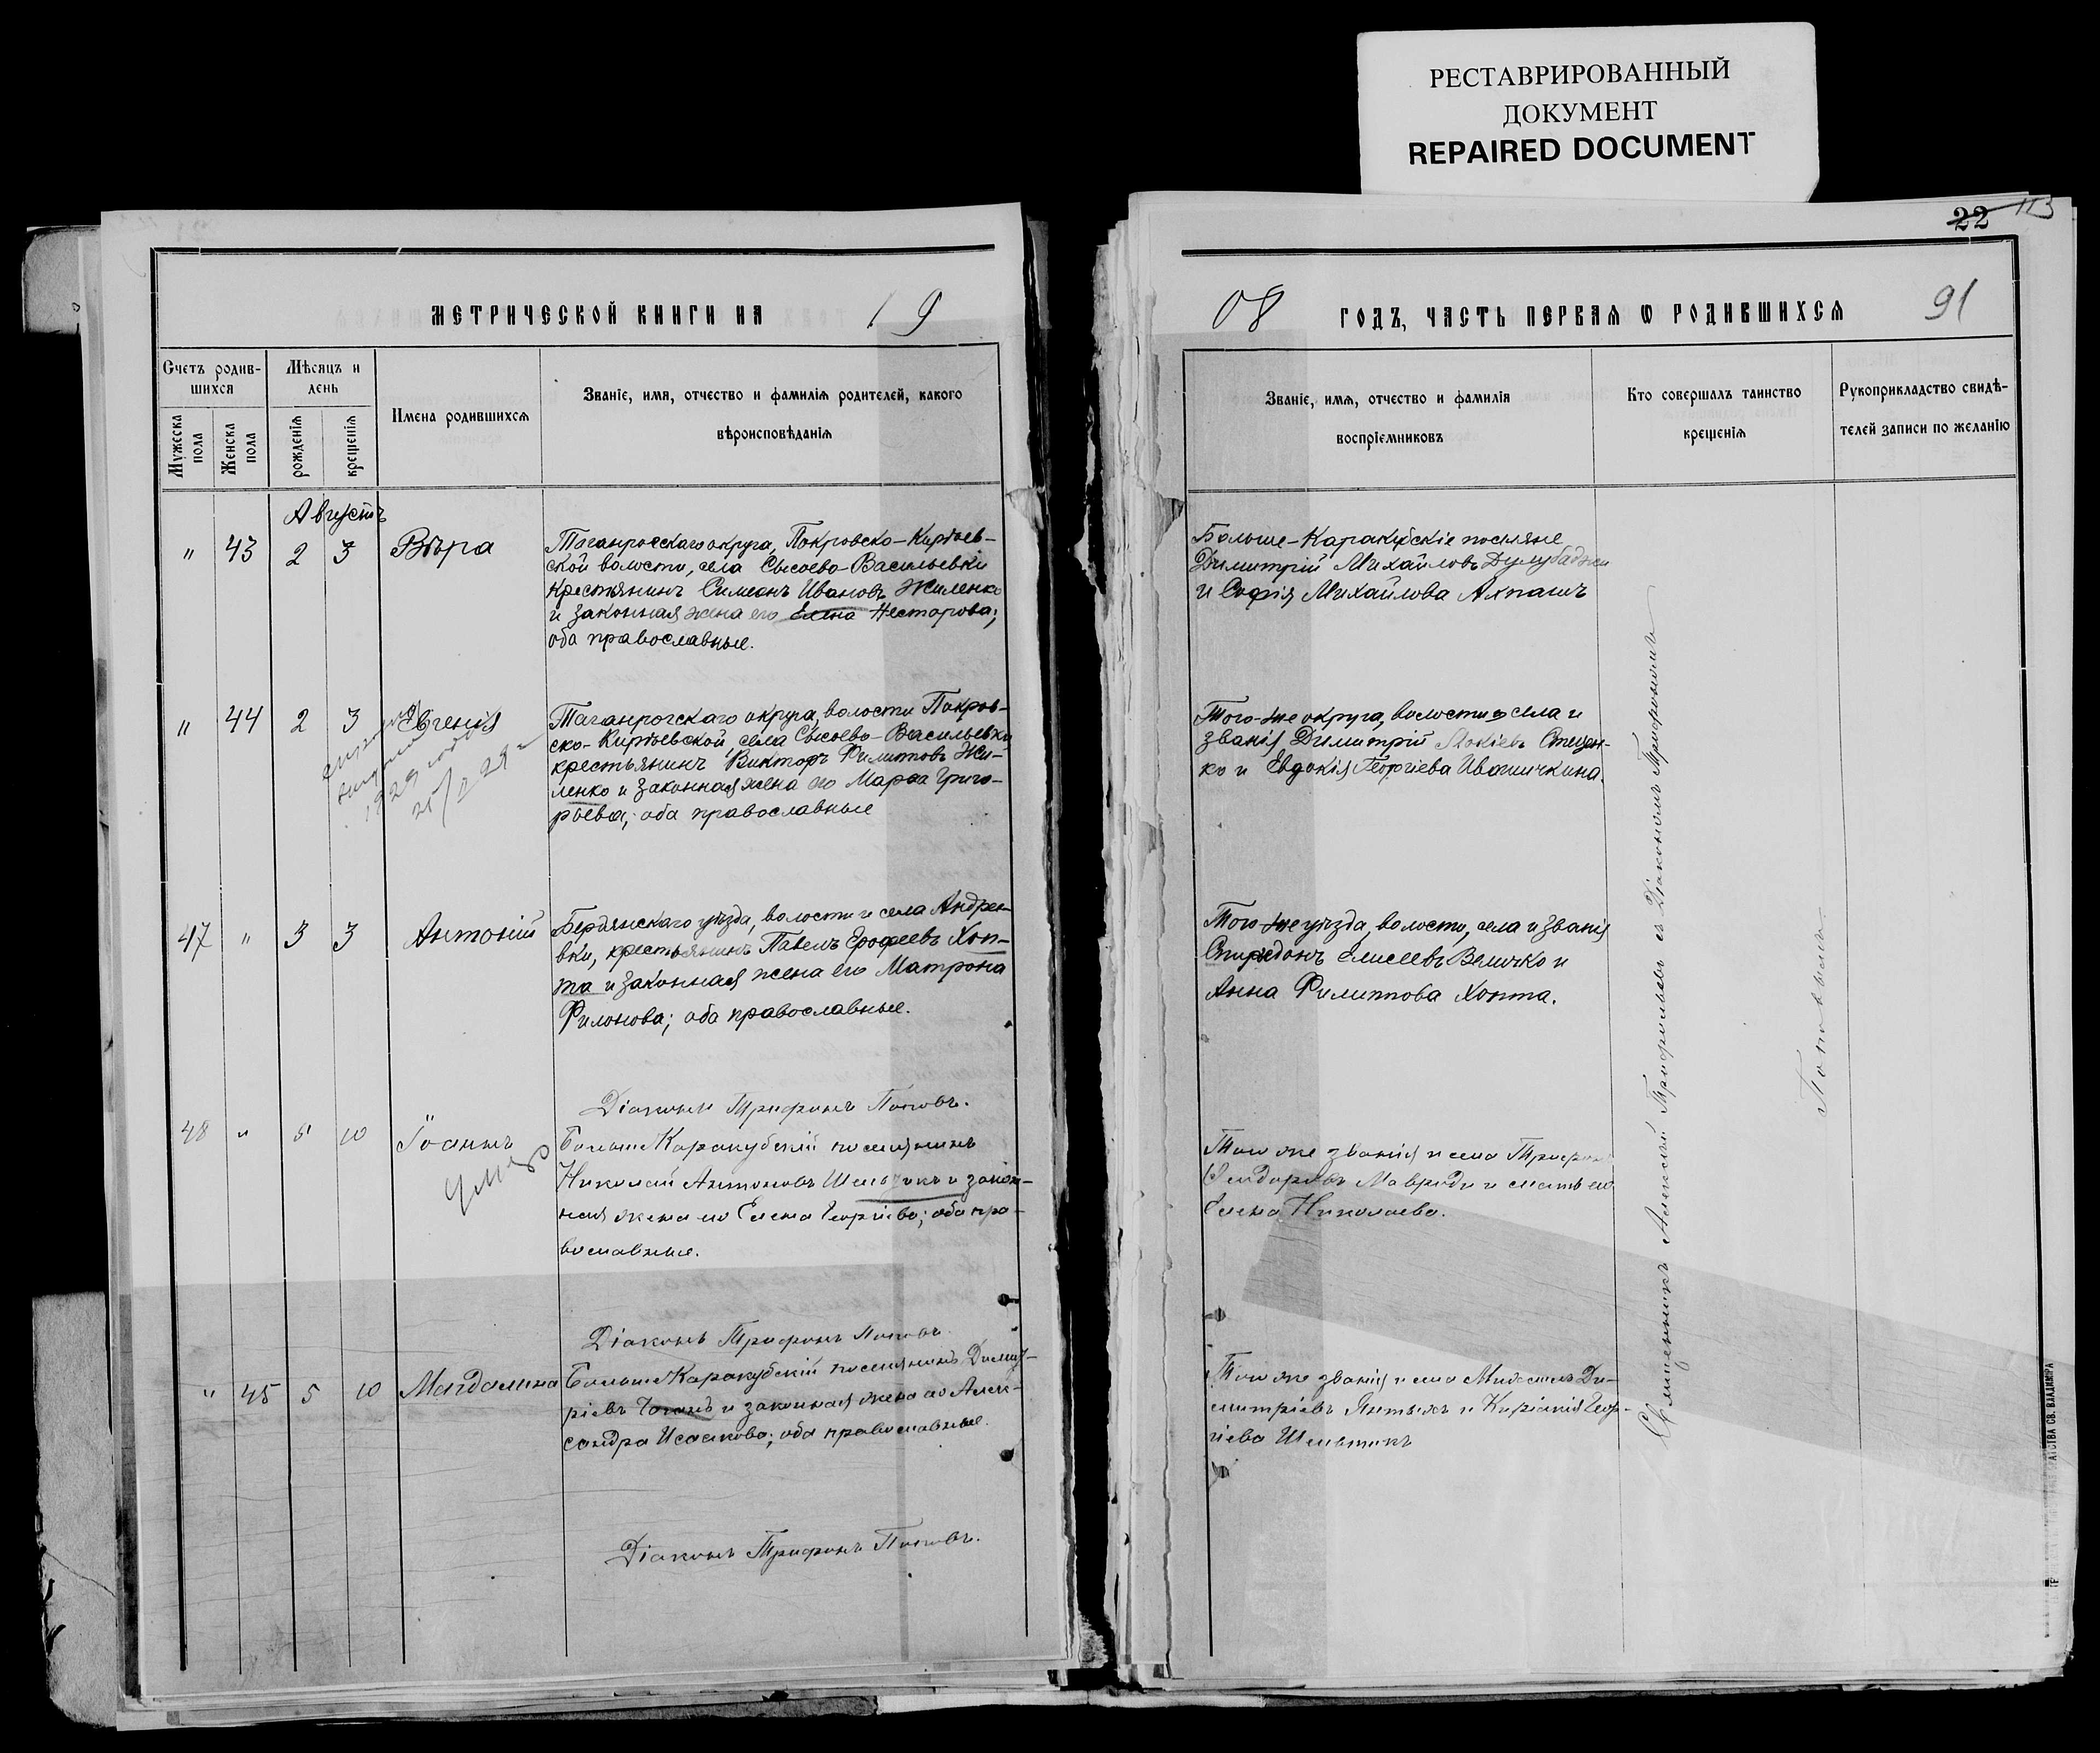 РЕСТАВРИРОВАННЫЙ
ДОКУМЕНТ
REPAIRED DOCUMENT
22 113
МЕТРИЧЕСКОЙ КНИГИ НА 19
08 ГОДЪ, ЧАСТЬ ПЕРВАЯ Ѡ РОДИВШИХСЯ 91
Счетъ родив-
шихся
Мѣсяцъ и
день
Мужеска
пола
Женска
пола
рожденія
крещенія
Имена родившихся
Званіе, имя, отчество и фамилія родителей, какого
вѣроисповѣданія
Званіе, имя, отчество и фамилія
воспріемниковъ
Кто совершалъ таинство
крещенія
Рукоприкладство свидѣ-
телей записи по желанію
Августъ
" 43 2 3 Вѣра
Таганрогскаго округа, Покровско-Кирѣев-
ской волости, села Сысоево-Васильевки
крестьянинъ Симеонъ Ивановъ Жиленко
и законная жена его Елена Несторова;
оба православные.
Больше-Каракубскіе поселяне
Димитрій Михайловъ Дулубаджи
и Софія Михайлова Ахпашъ
" 44 2 3 Евгенія
1929 года
Таганрогскаго округа, волости Покров-
ско-Кирѣевской, села Сысоево-Васильевки
крестьянинъ Викторъ Филиповъ Жи-
ленко и законная жена его Марѳа Григо-
рьева; оба православные
Того-же округа, волости, села и
званія Димитрій Стецен-
ко и Евдокія Георгіева Иваничкина.
47 " 3 3 Антоній
Бердянскаго уѣзда, волости и села Андрее-
вки, крестьянинъ Павелъ Ерофеевъ Хоп-
та и законная жена его Матрона
Филонова; оба православные.
Того же уѣзда, волости, села и званія
Спиридонъ Елисеевъ Величко и
Анна Филиппова Хопта.
Діаконъ Трифонъ Поповъ.
48 " 5 10 Іоаннъ
Больше Каракубскій поселянинъ
Николай Антоновъ и закон-
ная жена его Елена Георгіева; оба пра-
вославные.
Того же званія и села Трифонъ
Ѳеодоровъ Мавроди и мать его
Елена Николаева.
Діаконъ Трифонъ Поповъ
" 45 5 10 Магдалина
Больше Каракубскій поселянинъ Димит-
ріевъ и законная жена его Алек-
сандра Исаакова; оба православные.
Того же званія и села Михаилъ Ди-
митріевъ Янтыкъ и Киріакія Геор-
гіева Шельтикъ
Діаконъ Трифонъ Поповъ.
Священникъ Алексій Трифильевъ съ Діакономъ Трифономъ
Поповымъ